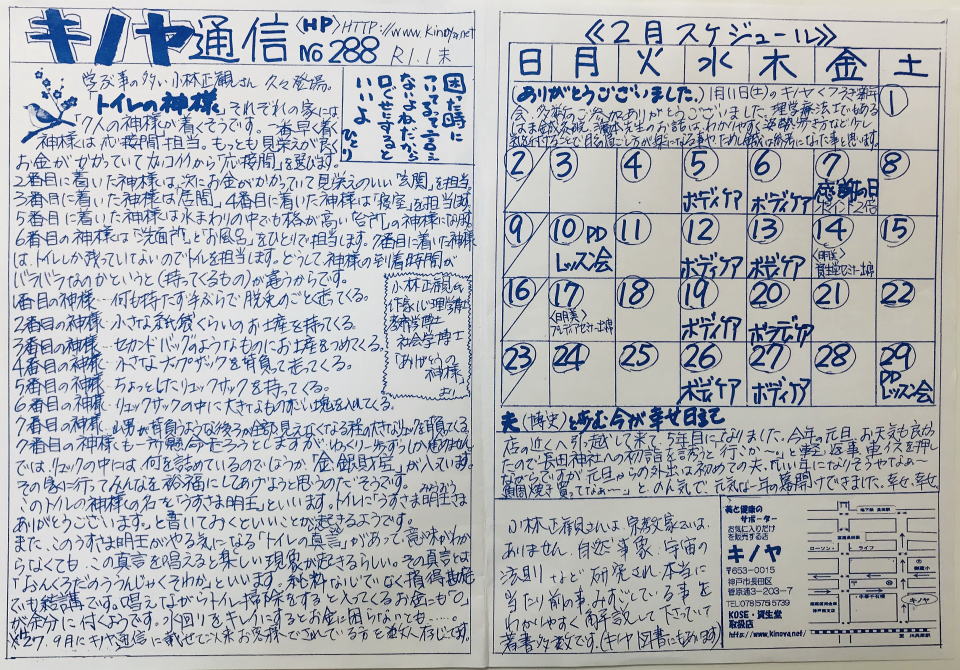 キノヤ通信
<HP>HTTP://www.kinoya.net
No 288 R1.1末
学ぶ事の多い小林正観さん 久々登場。
「トイレの神様」それぞれの家には
「7人の神様が着くそうです。一番早く着く
神様は応接間担当。もっとも見栄えが良く
お金がかかっていてカッコイイから「応接間」を選びます。
困った時に
ついてるって言え
ないよねだから
口ぐせにすると
いいよ
ひとり
2番目に着いた神様は次にお金がかかっていて見栄えのいい「玄関」を担当。
3番目に着いた神様は「居間」、4番目に着いた神様は「寝室」を担当します。
5番目に着いた神様は水まわりの中でも格が高い「台所」の神様になります。
6番目の神様は「洗面所」と「お風呂」をひとりで担当します。7番目に着いた神様
は、トイレしか残っていないのでトイレを担当します。どうして神様の到着時間が
バラバラなのかというと(持ってくるもの)が違うからです。
1番目の神様…何も持たず手ぶらで脱兎のごとく走ってくる。
2番目の神様…小さな紙袋くらいのお土産を持ってくる。
3番目の神様…セカンドバックのようなものにお土産をつめてくる。
4番目の神様…小さなナップザックを背負って走ってくる。
5番目の神様…ちょっとしたリュックサックを持ってくる。
6番目の神様…リュックサックの中に大きなものすごい塊を入れてくる。
7番目の神様…山男が背負うような後ろから全部見えなくなる程の大きなリュックを背負ってくる
7番目の神様も一所懸命走ろうとしますが、ゆっくり一歩ずつしか進めません
では、リュックの中には何を詰めているのでしょうか。「金銀財宝」が入っています。
その家に行ってみんなを裕福にしてあげようと思うのだそうです。
このトイレの神様の名を「うすさま明王」といいます。トイレに「うすさま明王さま
みょうおう
ありがとうございます。」と書いておくといいことが起きるようです。
また、このうすさま明王がやる気になる「トイレの真言」があって、意味がわか
らなくても、この真言を唱えると楽しい現象が起きるらしい。その真言とは
でも結構です。唱えながらトイレ掃除をすると入ってくるお金にも「0」
が余分に付くようです。水回りをキレイにするとお金に困らないとも……。
※27、9月にキノヤ通信に載せて以来お客様でされている方を数人存じてます。
小林正観さん
作家、心理学博士
教育学博士
社会学博士
「ありがとうの
神様」
より
≪2月スケジュール≫
日 月 火 水 木 金 土
(ありがとうございました。)1月11日(土)のキノヤクラブ新年
会、多数のご参加ありがとうございました。理学療法士でもある
1
2 3 4 5 6 7 8
ボディケア ボディケア 感謝の日
ポイント2倍
9 10 11 12 13 14 15
PD
レッスン会 ボディケア ボディケア
16 17 18 19 20 21 22
ボディケア ボディケア
23 24 25 26 27 28 29
ボディケア ボディケア PD
レッスン会
夫(博史)と歩む今が幸せ日記
店の近くへ引っ越して来て、5年目になりました。今年の元日、お天気も良かっ
たので長田神社への初詣を誘うと「行こか〜」と軽い返事。車イスを押し
ながらですが元旦からの外出は初めての夫、「いい年になりそうやなぁ〜
と、のん気で、元気な一年の幕開けできました。幸せ、幸せ
小林正観さんは、宗教家では、
ありません。自然事象、宇宙の
法則などを研究され、本当に
当たり前の事、みすごている事を
わかりやすく再確認して下さって
著書多数です。(キノヤ図書にもあります)
美と健康の
サポーター
お気に入りだけ
を販売する店
キノヤ
〒653-0015
神戸市長田区
菅原通3-203-7
TEL078(575)5739
KOSE・資生堂
取扱店
http://www.kinoya.net/
ローソン
ライフ
キノヤ